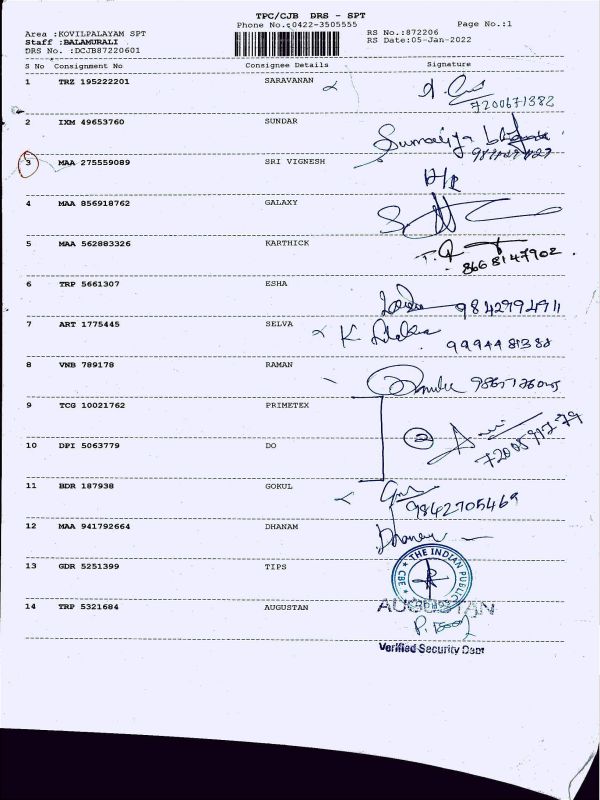 TPC/CJB DRS - SPT
Phone No.:0422-3505555
Page No.:1
Area :KOVILPALAYAM SPT
RS No.:872206
Staff :BALAMURALI
RS Date:05-Jan-2022
DRS No. :DCJB87220601
S No Consignment No Consignee Details Signature
1 TRZ 195222201 SARAVANAN
7200671382
2 IXM 49653760 SUNDAR
Sumaiya
3 MAA 275559089 SRI VIGNESH
4 MAA 856918762 GALAXY
5 MAA 562883326 KARTHICK
8668147902
6 TRP 5661307 ESHA
9842994911
7 ART 1775445 SELVA K
9994481388
8 VNB 789178 RAMAN
9 TCG 10021762 PRIMETEX
2
10 DPI 5063779 DO
11 BDR 187938 GOKUL
9842705469
12 MAA 941792664 DHANAM
Dhanam
13 GDR 5251399 TIPS
THE INDIAN PUBLIC
CBE
14 TRP 5321684 AUGUSTAN
AUGUSTAN
Verified Security Dept